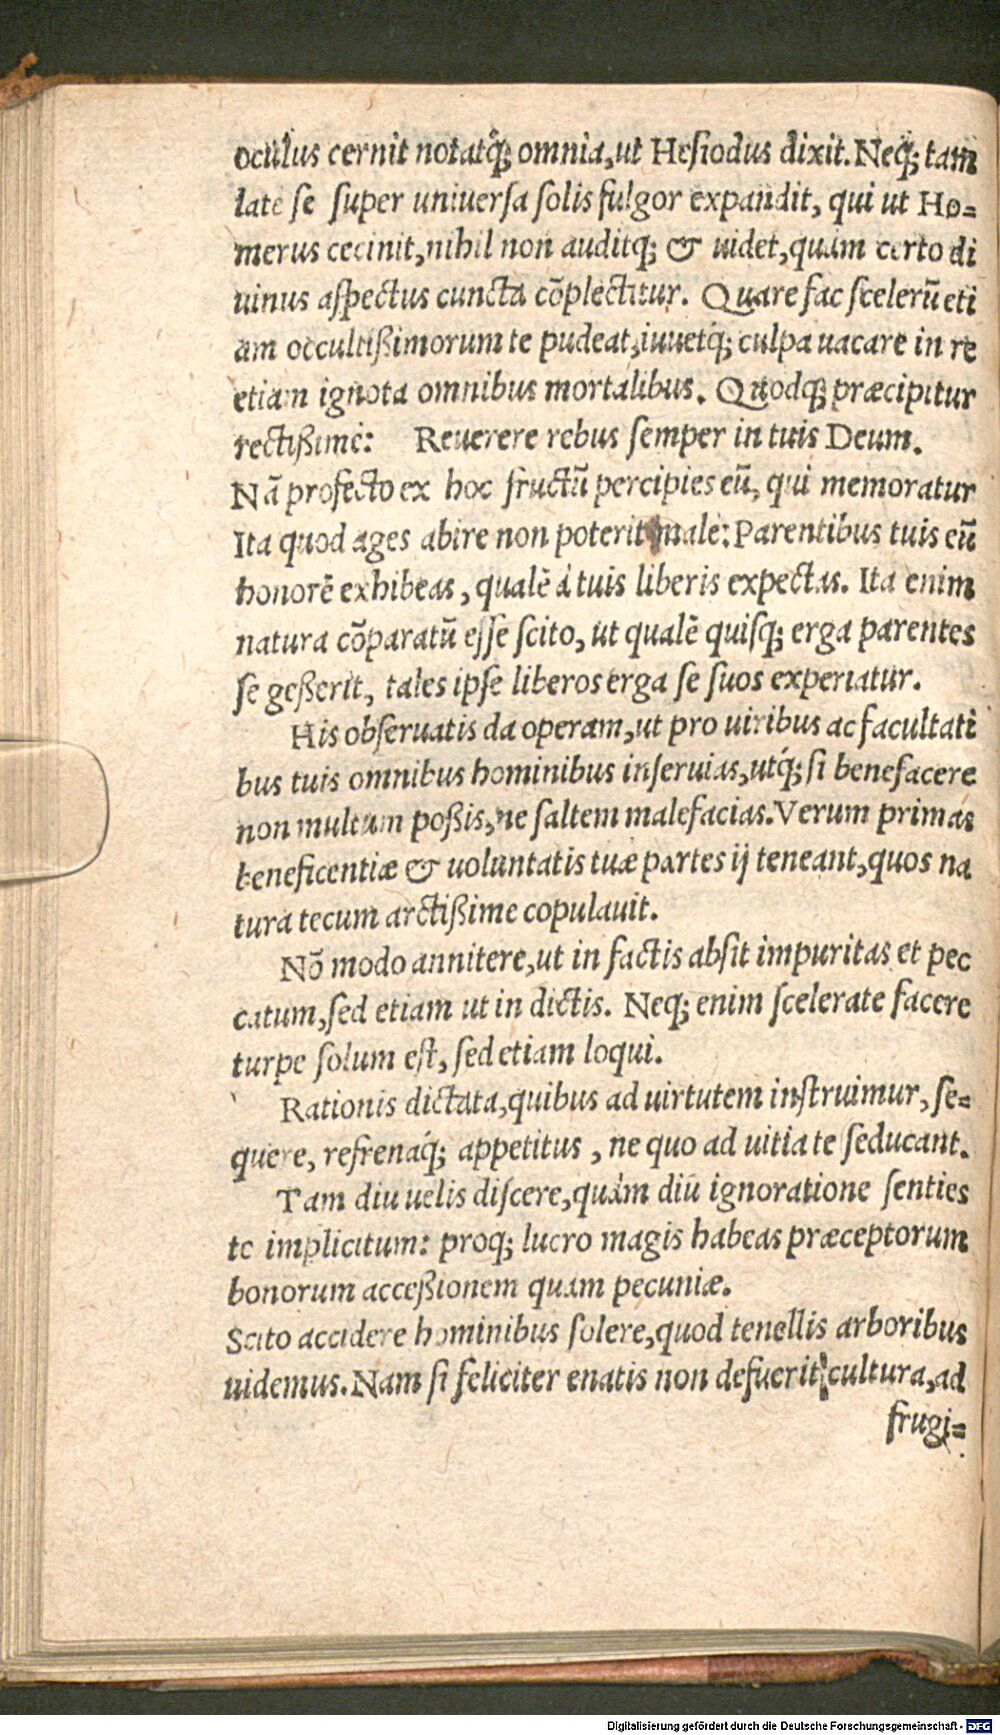 oculus cernit notatq́; omnia, ut Hesiodus dixit. Neq; tam
late se super uniuersa solis fulgor expandit, qui ut Ho=
merus cecinit, nihil non auditq; & uidet, quàm certo di
uinus aspectus cuncta cōplectitur. Quare fac scelerū eti
am occultißimorum te pudeat, iuuetq́; culpa uacare in re
etiam ignota omnibus mortalibus. Quodq; præcipitur
rectißimè: Reuerere rebus semper in tuis Deum.
Nā profecto ex hoc fructū percipies eū, qui memoratur
Ita quod ages abire non poterit male: Parentibus tuis eū
honorē exhibeas, qualē à tuis liberis expectas. Ita enim
natura cōparatū esse scito, ut qualē quisq; erga parentes
se geßerit, tales ipse liberos erga se suos experiatur.
His obseruatis da operam, ut pro uiribus ac facultati
bus tuis omnibus hominibus inseruias, utq́; si benefacere
non multum poßis, ne saltem malefacias. Verum primas
beneficentiæ & uoluntatis tuæ partes ij teneant, quos na
tura tecum arctißime copulauit.
Nō modo annitere, ut in factis absit impuritas et pec
catum, sed etiam ut in dictis. Neq; enim scelerate facere
turpe solum est, sed etiam loqui.
Rationis dictata, quibus ad uirtutem instruimur, se=
quere, refrenaq́; appetitus, ne quo ad uitia te seducant.
Tam diu uelis discere, quàm diu ignoratione senties
te implicitum: proq; lucro magis habeas præceptorum
bonorum acceßionem quam pecuniæ.
Scito accidere hominibus solere, quod tenellis arboribus
uidemus. Nam si feliciter enatis non defuerit cultura, ad
frugi=
Digitalisierung gefördert durch die Deutsche Forschungsgemeinschaft - DFG